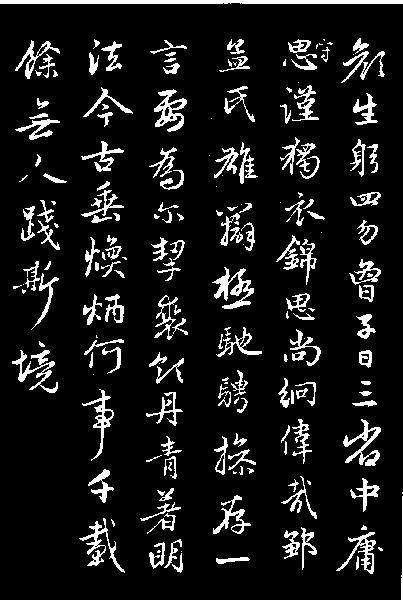 顏生躬四勿曾子日三省中庸
思守謹獨衣錦思尚絅偉哉鄒
孟氏雄辯極馳騁操存一
言要為爾挈裘領丹青著明
法今古垂煥炳何事千載
餘無人踐斯境